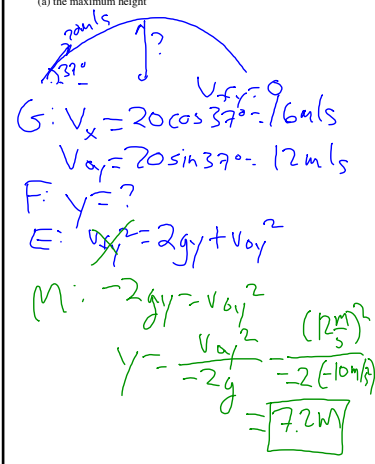 (a) the maximum height
20m/s
?
37°
Vfy = 0
G: Vx = 20cos37° = 16m/s
Voy = 20sin37° = 12m/s
F: y = ?
E: Vfy² = 2gy + Voy²
M: -2gy = Voy²
y = Voy²/-2g = (12 m/s)²/-2(-10m/s²)
= 7.2M